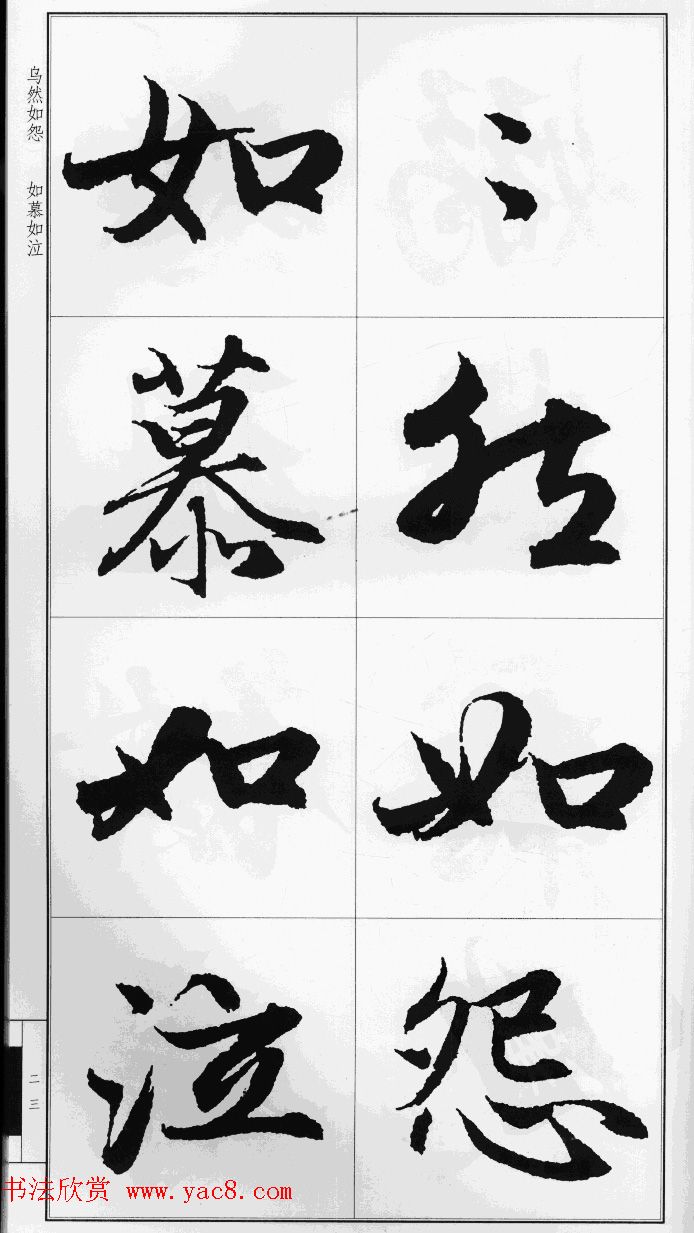 〻然如怨
如慕如泣
乌然如怨 如慕如泣
二三
书法欣赏 www.yac8.com